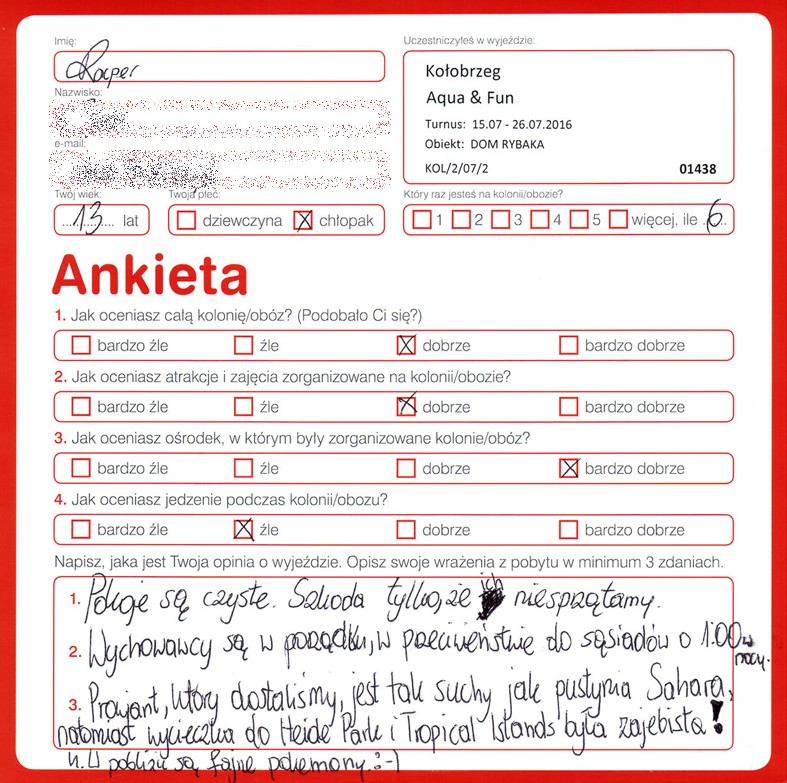 Imię:
Kacper
Uczestniczyłeś w wyjeździe:
Kołobrzeg
Aqua & Fun
Turnus: 15.07 - 26.07.2016
Obiekt: DOM RYBAKA
KOL/2/07/2 01438
Nazwisko:
e-mail:
Twój wiek:
...13... lat
Twoja płeć:
dziewczyna X chłopak
Który raz jesteś na kolonii/obozie?
1 2 3 4 5 więcej, ile .6..
Ankieta
1. Jak oceniasz całą kolonię/obóz? (Podobało Ci się?)
bardzo źle źle X dobrze bardzo dobrze
2. Jak oceniasz atrakcje i zajęcia zorganizowane na kolonii/obozie?
bardzo źle źle X dobrze bardzo dobrze
3. Jak oceniasz ośrodek, w którym były zorganizowane kolonie/obóz?
bardzo źle źle dobrze X bardzo dobrze
4. Jak oceniasz jedzenie podczas kolonii/obozu?
bardzo źle X źle dobrze bardzo dobrze
Napisz, jaka jest Twoja opinia o wyjeździe. Opisz swoje wrażenia z pobytu w minimum 3 zdaniach.
1. Pokoje są czyste. Szkoda tylko, że ich niesprzątamy.
2. Wychowawcy są w porządku, w przeciwieństwie do sąsiadów o 1:00 w nocy.
3. Prowiant, który dostaliśmy, jest tak suchy jak pustynia Sahara,
natomiast wycieczka do Heide Park i Tropical Islands była zajebista!
4. W pobliżu są fajne pokemony. :-)